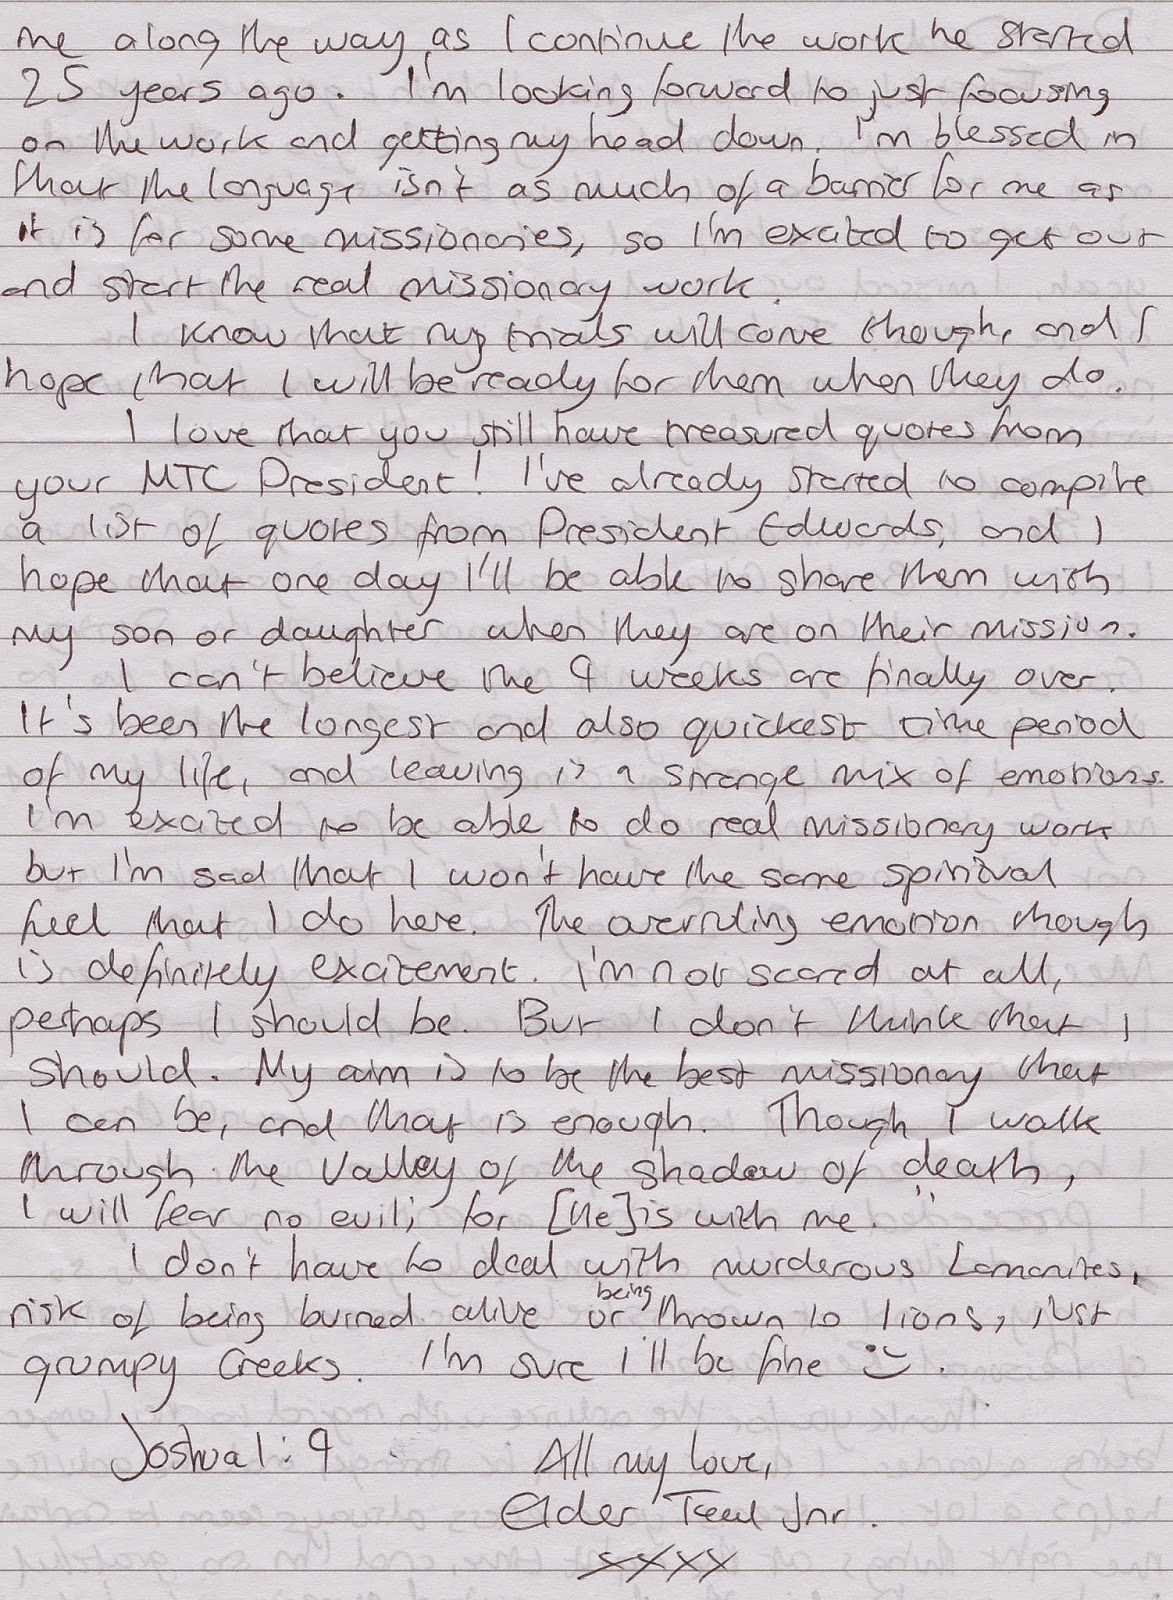 me along the way as I continue the work he started
25 years ago. I'm looking forward to just focusing
on the work and getting my head down. I'm blessed in
that the language isn't as much of a barrier for me as
it is for some missionaries, so I'm excited to get out
and start the real missionary work.
I know that my trials will come though, and I
hope that I will be ready for them when they do.
I love that you still have treasured quotes from
your MTC President! I've already started to compile
a list of quotes from President Edwards, and I
hope that one day I'll be able to share them with
my son or daughter when they are on their mission.
I can't believe the 9 weeks are finally over.
It's been the longest and also quickest time period
of my life, and leaving is a strange mix of emotions.
I'm excited to be able to do real missionary work
but I'm sad that I won't have the same spiritual
feel that I do here. The overriding emotion though
is definitely excitement. I'm not scared at all,
perhaps I should be. But I don't think that I
should. My aim is to be the best missionary that
I can be, and that is enough. Though I walk
through the valley of the shadow of death,
I will fear no evil; for [He] is with me."
I don't have to deal with murderous Lamanites,
risk of being burned alive or being thrown to lions, just
grumpy Greeks. I'm sure I'll be fine :).
Joshua 1:9 All my love,
Elder Jnr.
xxxx